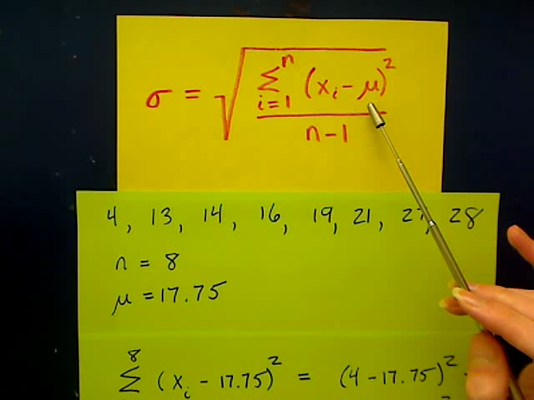 σ = √(∑ⁿᵢ₌₁ (xᵢ − μ)² / n − 1)
4, 13, 14, 16, 19, 21, 28
n = 8
μ = 17.75
⁸∑ (xᵢ − 17.75)² = (4 − 17.75)²